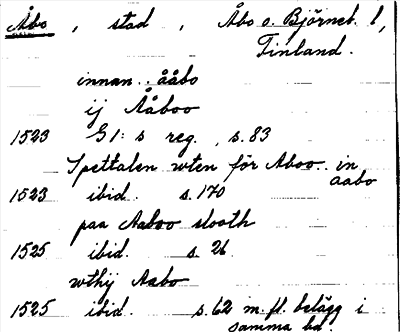 Åbo, stad, Åbo o. Björneb. l,
Finland.
innan.. ååbo
ij Ååboo
1523 G1:s reg., s. 83
Spettalen wten för Aboo.. in
aabo
1523 ibid. s. 170
paa Aaboo slooth
1525 ibid. s. 26
wthij Aabo
1525 ibid. s. 62 m. fl. belägg i
samma bd.